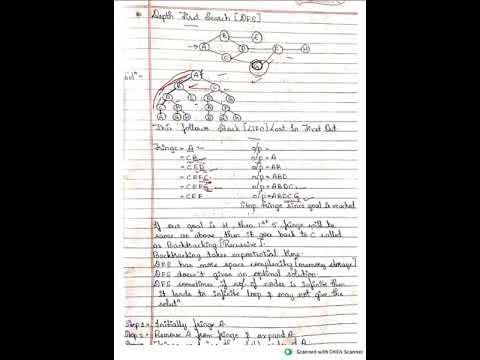 Depth First Search [DFS]
B
E
A
D
F
H
C
G
Solⁿ-
A
B
C
This follows Stack [LIFO] Last In First Out
Fringe = A
o/p = -
= CB
o/p = A
= CED
o/p = AB
= CEFC
o/p = ABD
= CEFG
o/p = ABDC
= CEF
o/p = ABDCG
Stop fringe since goal is reached
If our goal is H, then 1st 5 fringe will be
same as above, then it goes back to C called
as Backtracking [Recursive].
Backtracking takes exponential time.
DFS has more space complexity [memory storage]
DFS doesn't gives an optimal solution.
DFS sometimes if no of nodes is infinite then
it leads to infinite loop & may not give the
solutⁿ
Step 1 = Initially fringe A.
Step 2 = Remove A from fringe & expand A.
Scanned with OKEN Scanner